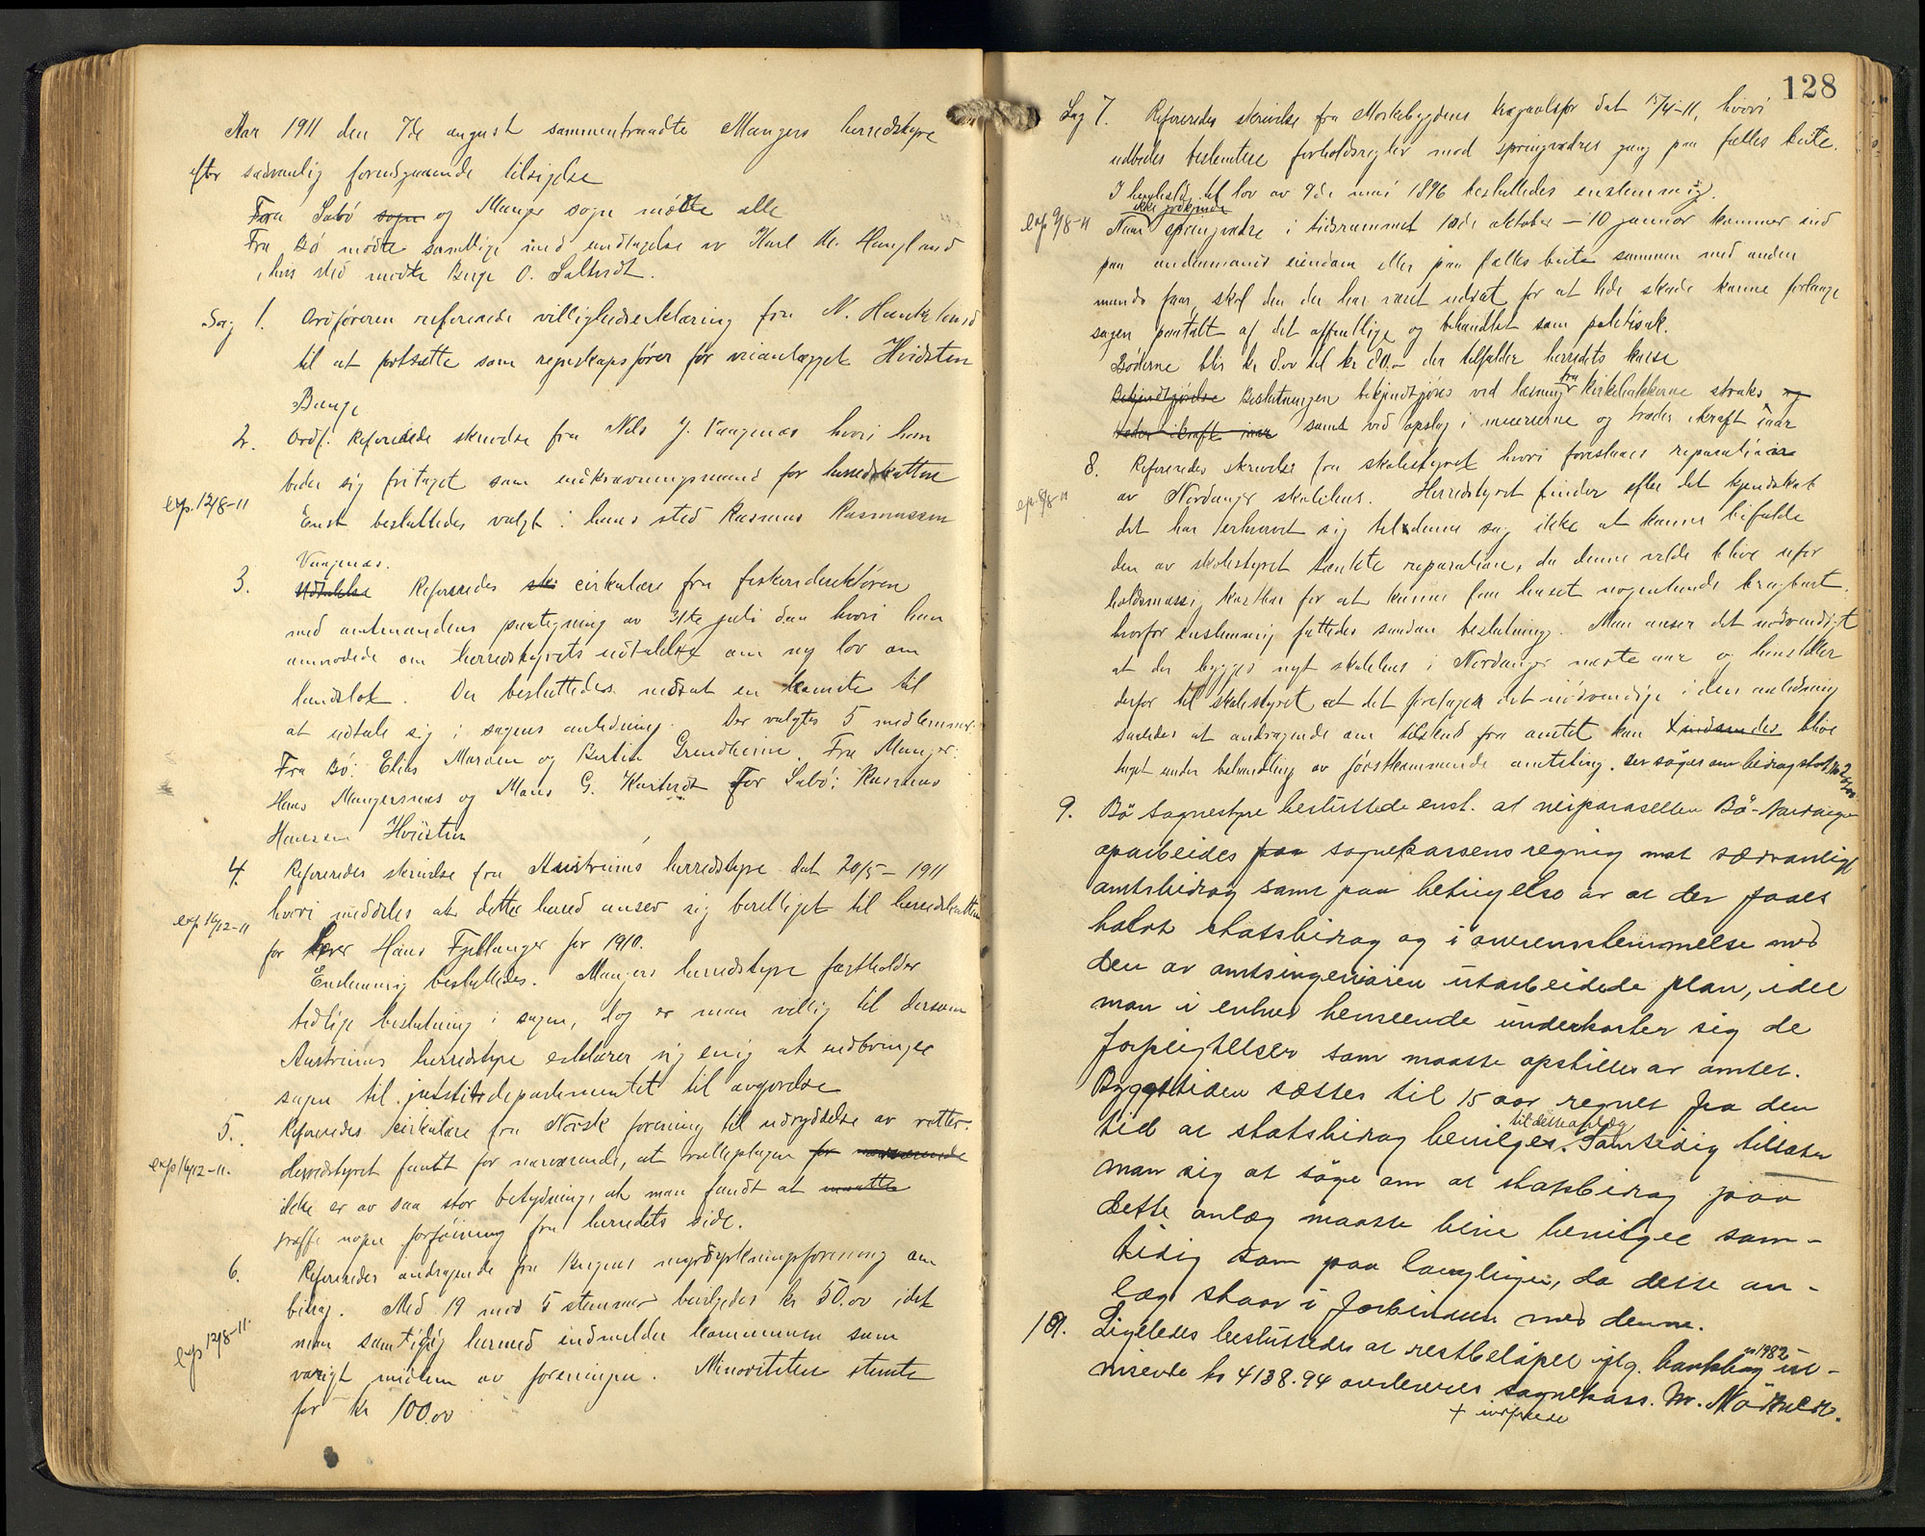 Aar 1911 den 7de august sammentraadte Mangers herredstyre
efter sædvanlig foregaaende tilsigelse
Fra Sæbø sogn og Manger sogn mødte alle
Fra Bø mødte samtlige med undtagelse av Karl M. Haugland
i hvis sted mødte Berge O. Saltvedt.
Sag 1. Ordføreren refererede villighedserklæring fra N.
til at fortsætte som regnskapsfører for veianlægget Hvidsten
Bauge
2. Ordf. Refererede skrivelse fra Nils J. Vaagenæs hvori han
beder sig fritaget som indkrævningsmand for herredskatten
exp. 12/8-11 Enst besluttedes valgt i hans sted Rasmus Rasmussen
Vaagenæs.
3. Udtalelse Refereredes skr cirkulære fra fiskeridirektøren
med amtmandens paategning av 31te juli d.a. hvori han
anmodede om herredstyrets udtalelse om ny lov om
. Der besluttedes nedsat en komite til
at udtale sig i sagens anledning. Der valgtes 5 medlemmer.
Fra Bø: Elias Marøen og Bertin Grendheim. Fra Manger:
Hans Mangersnes og Mons G. For Sæbø: Rasmus
Hansen Hvidsten
4. Refereredes skrivelse fra Austrheims herredstyre dat 20/5-1911
hvori meddeles at dette herred anser sig berettiget til herredskatten
exp 16/12-11
for lærer Hans Fjellanger for 1910.
Enstemmig besluttedes. Mangers herredstyre fastholder
tidlige beslutning i sagen, dog er man villig til dersom
Austrheims herredstyre erklærer sig enig at indbringe
sagen til justitsdepartementet til avgjørelse
5. Refereredes cirkulære fra Norsk forening til udryddelse av rotter.
exp 16/12-11. Herredstyret fandt for nærværende, at rotteplagen for nærværende
ikke er av saa stor betydning, at man fandt at maatte
træffe nogen forføining fra herredets side.
6. Refereredes andragende fra Bergens myrdyrkningsforening om
bidrag. Med 19 mod 5 stemmer bevilgedes kr 50.00 idet
exp 12/8-11. man samtidig hermed indmelder kommunen som
varigt medlem av foreningen. Minoriteten stemte
for kr 100.00
128
Sag 7. Refereredes skrivelse fra dat 15/4-11, hvori
udbedes bestemtere forholdsregler mod springvædres gang paa fælles beite.
I henhold til lov av 9de mai 1896 besluttedes enstemmig.
ikke godkjendte
exp 9/8-11 Naar springvædre i tidsrummet 10de oktober – 10 januar kommer ind
paa andenmands eiendom eller paa fælles beite sammen med anden
mands faar, skal den der har været udsat for at lide skade kunne forlange
sagen paatalt af det offentlige og behandlet som politisak.
Bøderne blir kr 8.00 til kr 80.– der tilfalder herredets kasse
Bekjendtgjørelse Beslutningen bekjendtgjøres ved læsning fra kirkebakkerne straks og
træder ikraft iaar samt ved opslag i meierierne og træder ikraft iaar
8. Refereredes skrivelse fra skolestyret hvori foreslaaes reparation
exp 8/8-11 av Nordanger skolehus. Herredstyret finder efter det kjendskab
det har erhvervet sig til denne sag ikke at kunne bifalde
den av skolestyret tænkte reparation, da denne vilde blive ufor
holdsmæssig kostbar for at kunne faa huset nogenlunde brugbart.
hvorfor enstemmig fattedes saadan beslutning. Man anser det nødvendigt
at der bygges nyt skolehus i Nordanger næste aar og henstiller
derfor til skolestyret at det foretager det nødvendige i den anledning
saaledes at andragende om tilskud fra amtet kan + indsendes blive
taget under behandling av førstkommende amtsting. der søges om bidrag
9. Bø sognestyre besluttede enst. at veiparasellen Bø-Nordanger
oparbeides paa sognekassens regnig mot sedvanligt
amtsbidrag samt paa betingelse av at der faaes
halvt statsbidrag og i overensstemmelse med
den av amtsingeniøren utarbeidede plan, idet
man i enhver henseende underkaster sig de
forpligtelser som maatte opstilles av amtet.
Byggetiden sættes til 15 aar regnet fra den
til dette anlæg
tid at statsbidrag bevilges. Samtidig tillater
man sig at søge om at statsbidrag paa
dette anlæg maatte blive bevilget sam-
tidig som paa , da dette an-
læg staar i forbindelse med denne.
10. Ligeledes besluttedes at restbeløpet ifølg. bankbog no 1982 ut-
visende kr 4138.94 overleveres sognekass. M.
+